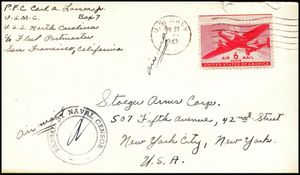 U.S.M.C. Box 7
U.S.S. North Carolina
℅ Fleet Postmaster
San Francisco, California
U.S. NAVY
1943
AIR 6 MAIL
UNITED STATES OF AMERICA
air mail
Stoeger Arms Corp.
507 Fifth Avenue, 42nd Street
New York City, New York.
U.S.A.
air mail
PASSED BY NAVAL CENSOR